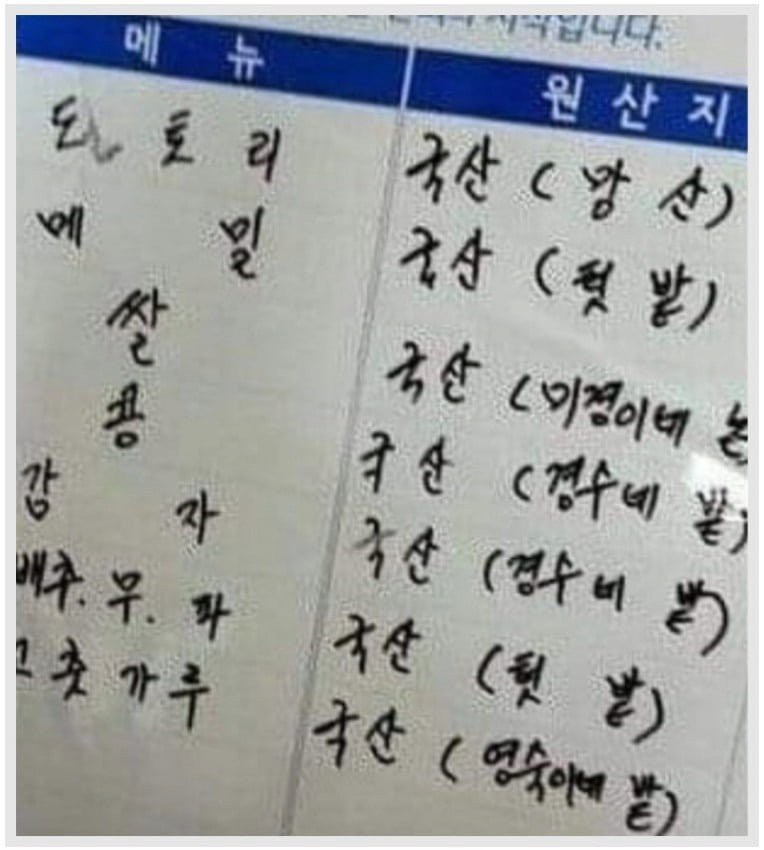 시작입니다.
메뉴 원산지
도토리 국산 (앞산)
메밀 국산 (텃밭)
쌀 국산 (미경이네 논
콩 국산 (경수네 밭)
감자 국산 (경수네 밭)
배추.무.파 국산 (텃밭)
고춧가루 국산 (영숙이네 밭)